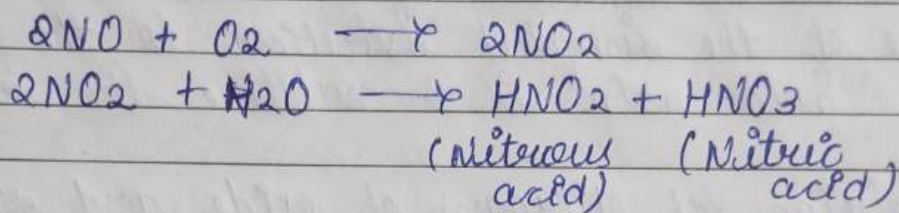 2NO + O2 → 2NO2
2NO2 + H2O → HNO2 + HNO3
(Nitrous (Nitric
acid) acid)